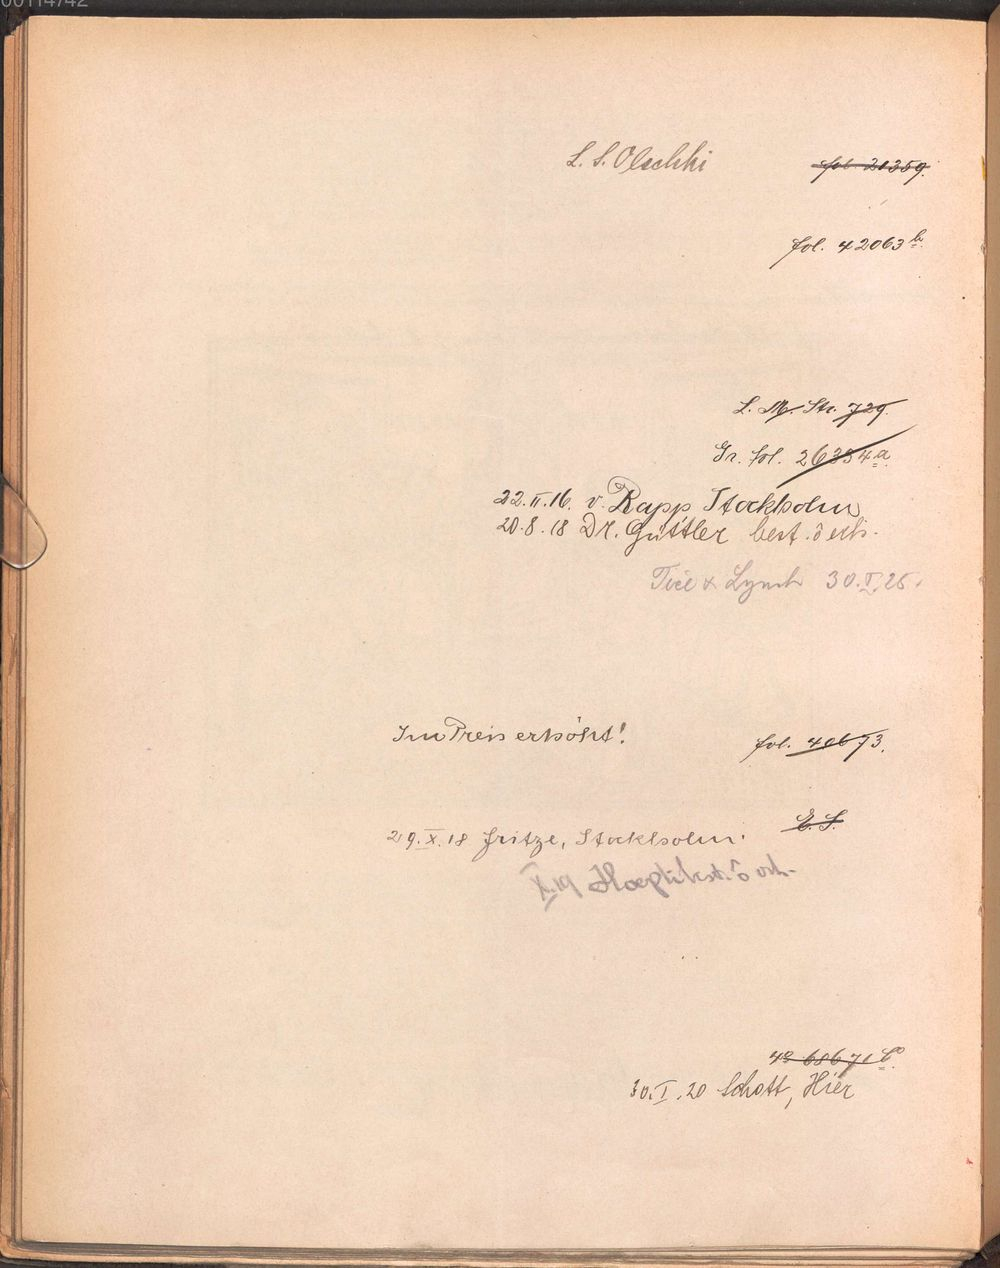 00114742
L. S. Olschki
fol. 21359.
fol. 42063 b.
L. M. Str. 729.
Gr. fol. 26334 a.
22.II.16. v. Rapp Stockholm
20.8.18 Dr. Güttler best. ö erh.
Tice & Lynch 30.V.25.
Im Preis erhöht!
fol. 40673.
E. S.
29.X.18 Fritze, Stockholm.
X.19 Hoepli best. ö erh.
4º 68671 c.
30.I.20 Schott, Hier